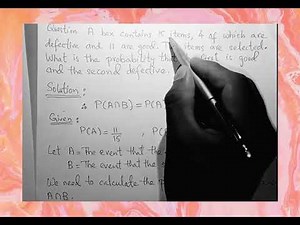 Question A box contains 15 items, 4 of which are
defective and 11 are good. items are selected.
What is the probability that is good
and the second defective.
Solution:
∴ P(A∩B) = P(A
Given:
P(A) = 11/15 , P(
Let A = The event that the
B = The event that the
We need to calculate the
A∩B.